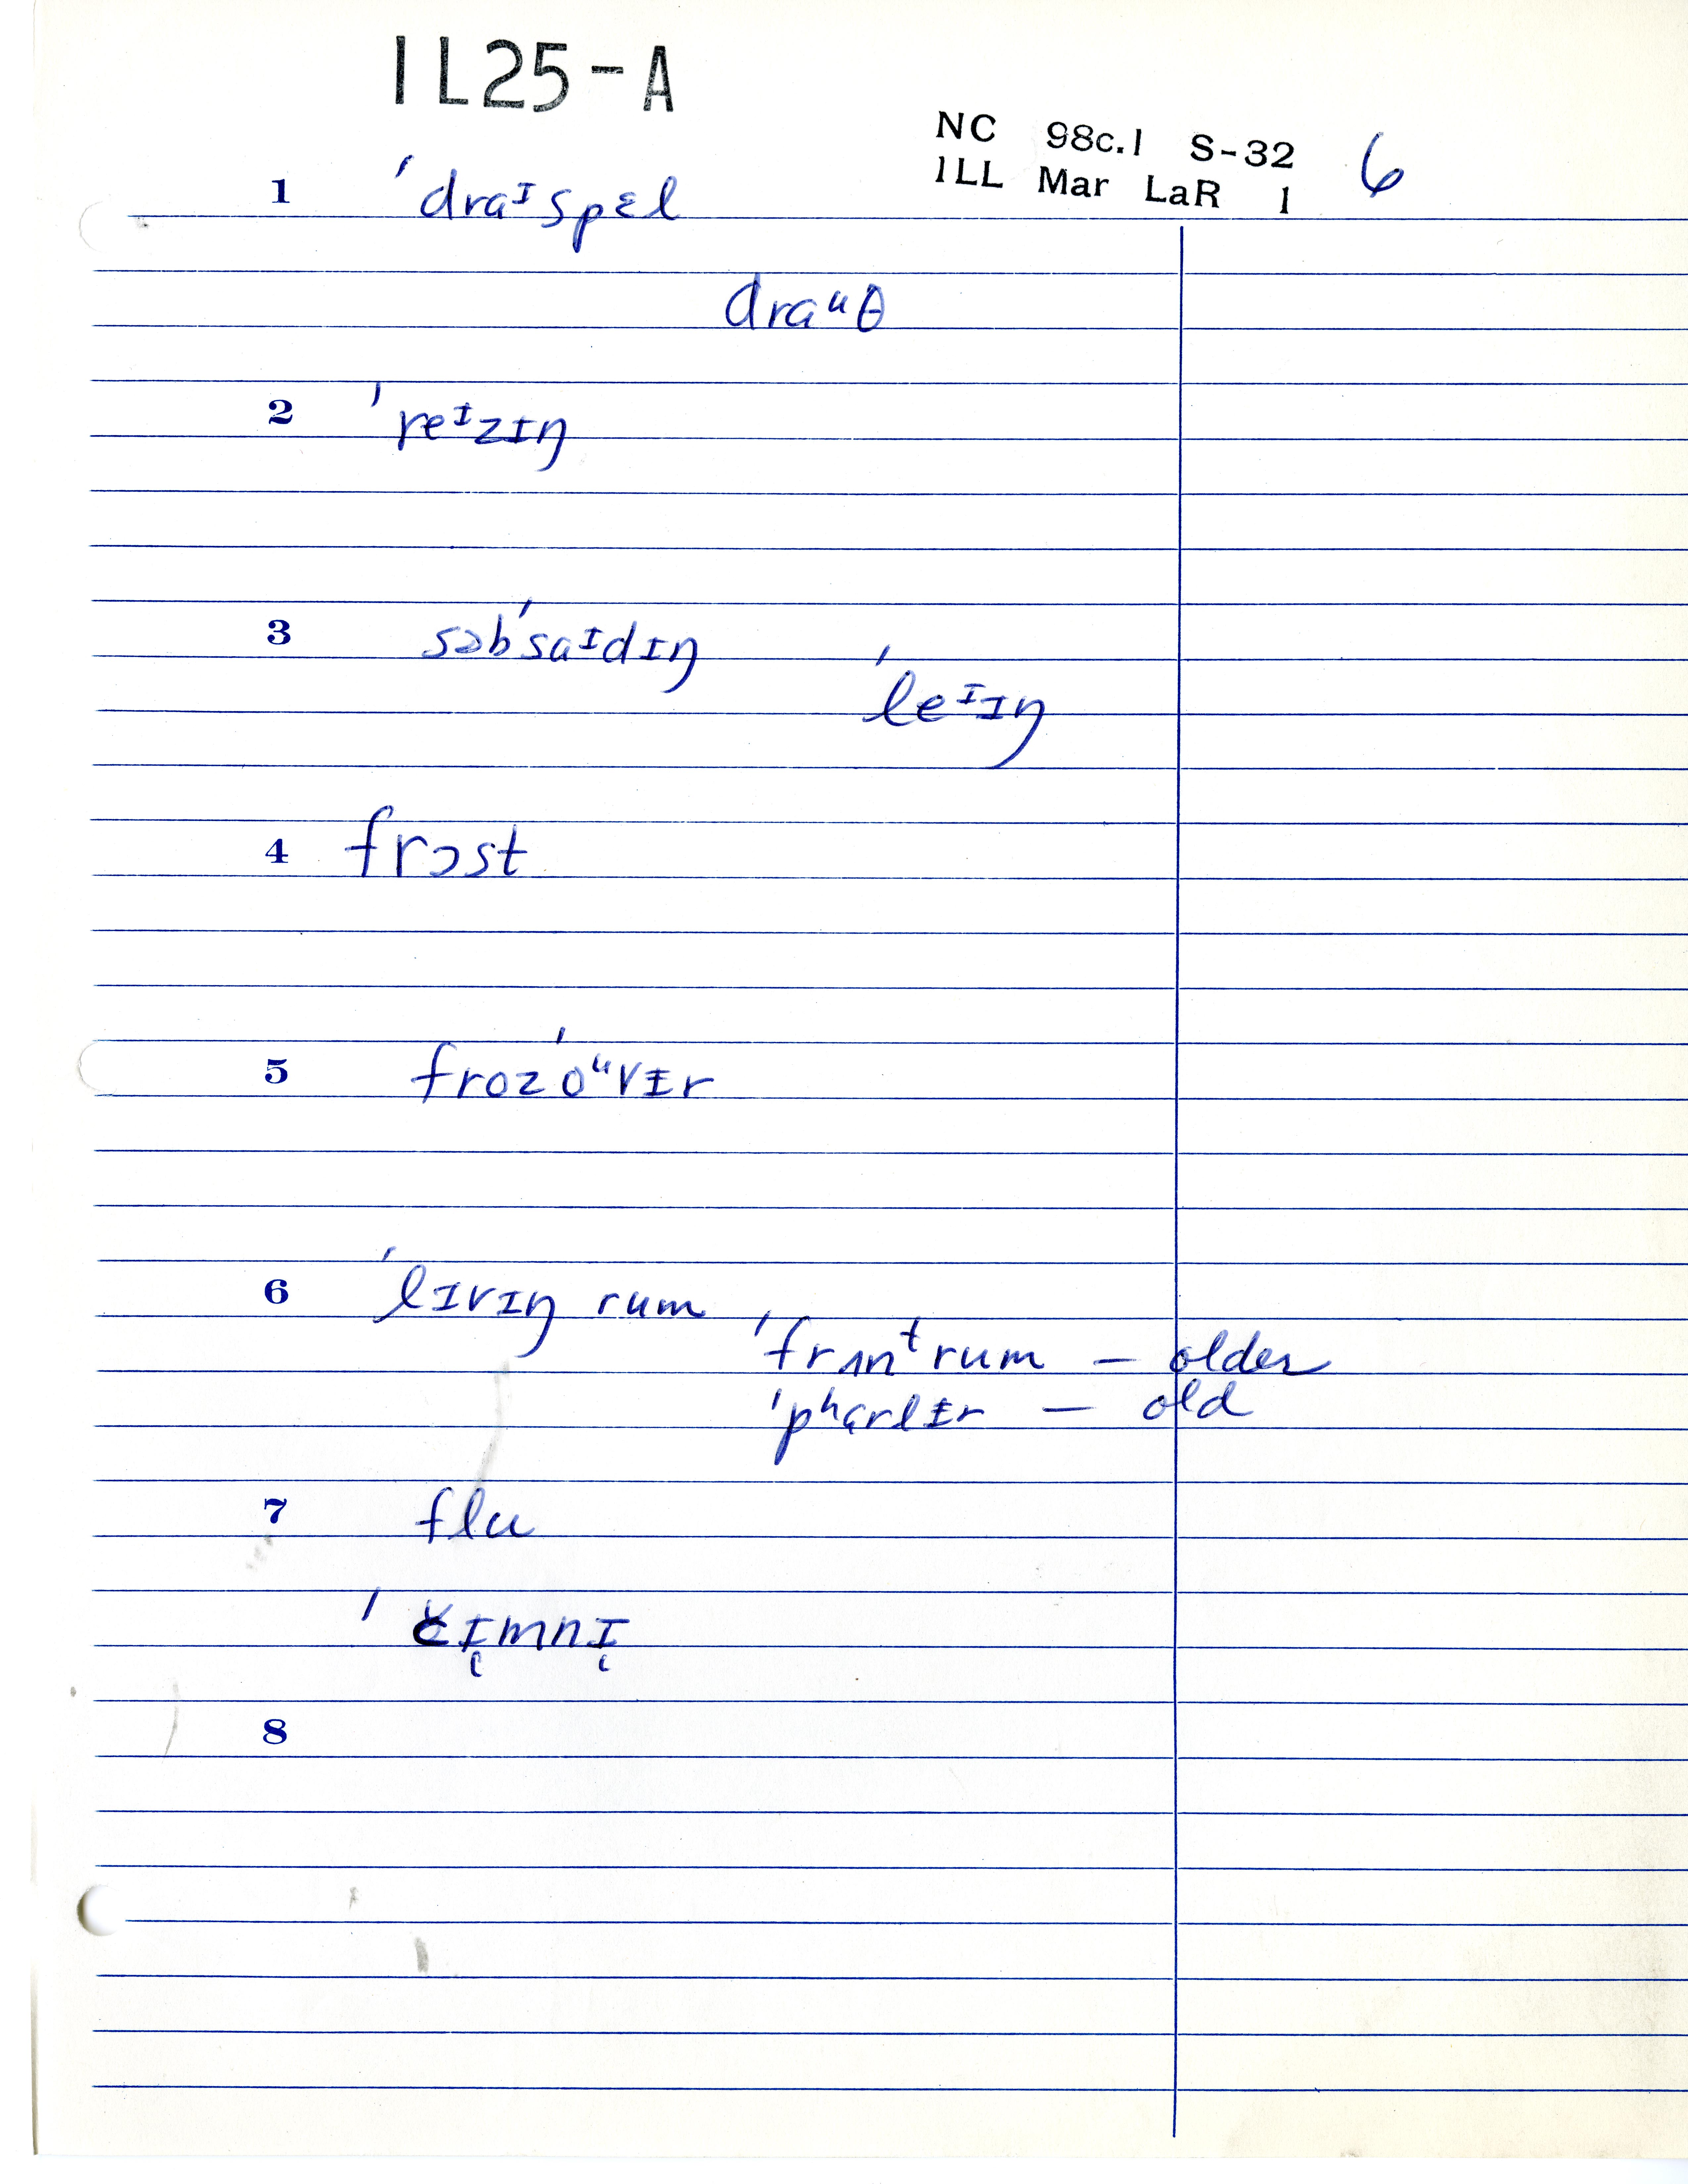 IL25-A
NC 98c.1 S-32 6
ILL Mar LaR 1
1 ˈdraᴵspɛl
draᵘθ
2 ˈreᴵzɪŋ
3 səbˈsaᴵdɪŋ
ˈleᴵɪŋ
4 frɔst
5 frozˈoᵘvɨr
6 ˈlɪvɪŋ rum
ˈfrʌnᵗrum – older
ˈpʰɑrlɨr – old
7 flu
ˈčɪ̨mnɪ̨
8